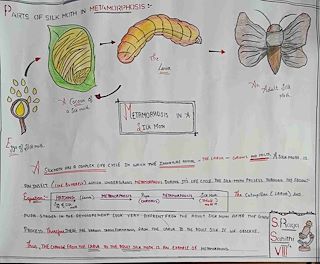 PARTS OF SILK MOTH IN METAMORPHOSIS:-
The Larva
A Cocoon of a Silk moth
An Adult Silk moth
METAMORPHOSIS IN A SILK MOTH
Eggs of Silk moth
A SILK MOTH HAS A COMPLEX LIFE CYCLE IN WHICH THE IMMATURE - THE LARVA - GROWS AND MOLTS. A SILK MOTH IS
AN INSECT (LIKE BUTTERFLY) WHICH UNDERGOES METAMORPHOSIS DURING ITS LIFE CYCLE. THE SILK MOTH PROCESS THROUGH THE
Equation:- HATCHING (Larva) METAMORPHOSIS Pupa (COCOON) METAMORPHOSIS Silk moth
Egg
The Caterpillar (LARVA) AND
PUPA STAGES IN THE DEVELOPMENT LOOK VERY DIFFERENT FROM THE ADULT SILK MOTH AFTER THE
PROCESS. THEREFORE THERE ARE VARIOUS TRANSFORMATION FROM THE LARVA TO THE ADULT SILK IF WE OBSERVE.
Thus, THE CHANGE FROM THE LARVA TO THE ADULT SILK MOTH IS AN EXAMPLE OF METAMORPHOSIS.
S. Raga
VIII